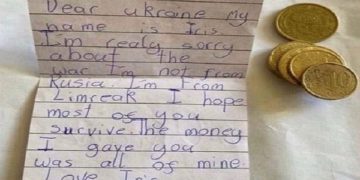 Dear ukraine My
name is Iris
I'm realy sorry
about the
war I'm not from
Rusia I'm From
Limreak I hope
most of you
survive. The money
I gave you
was all of mine
Love Iris
10